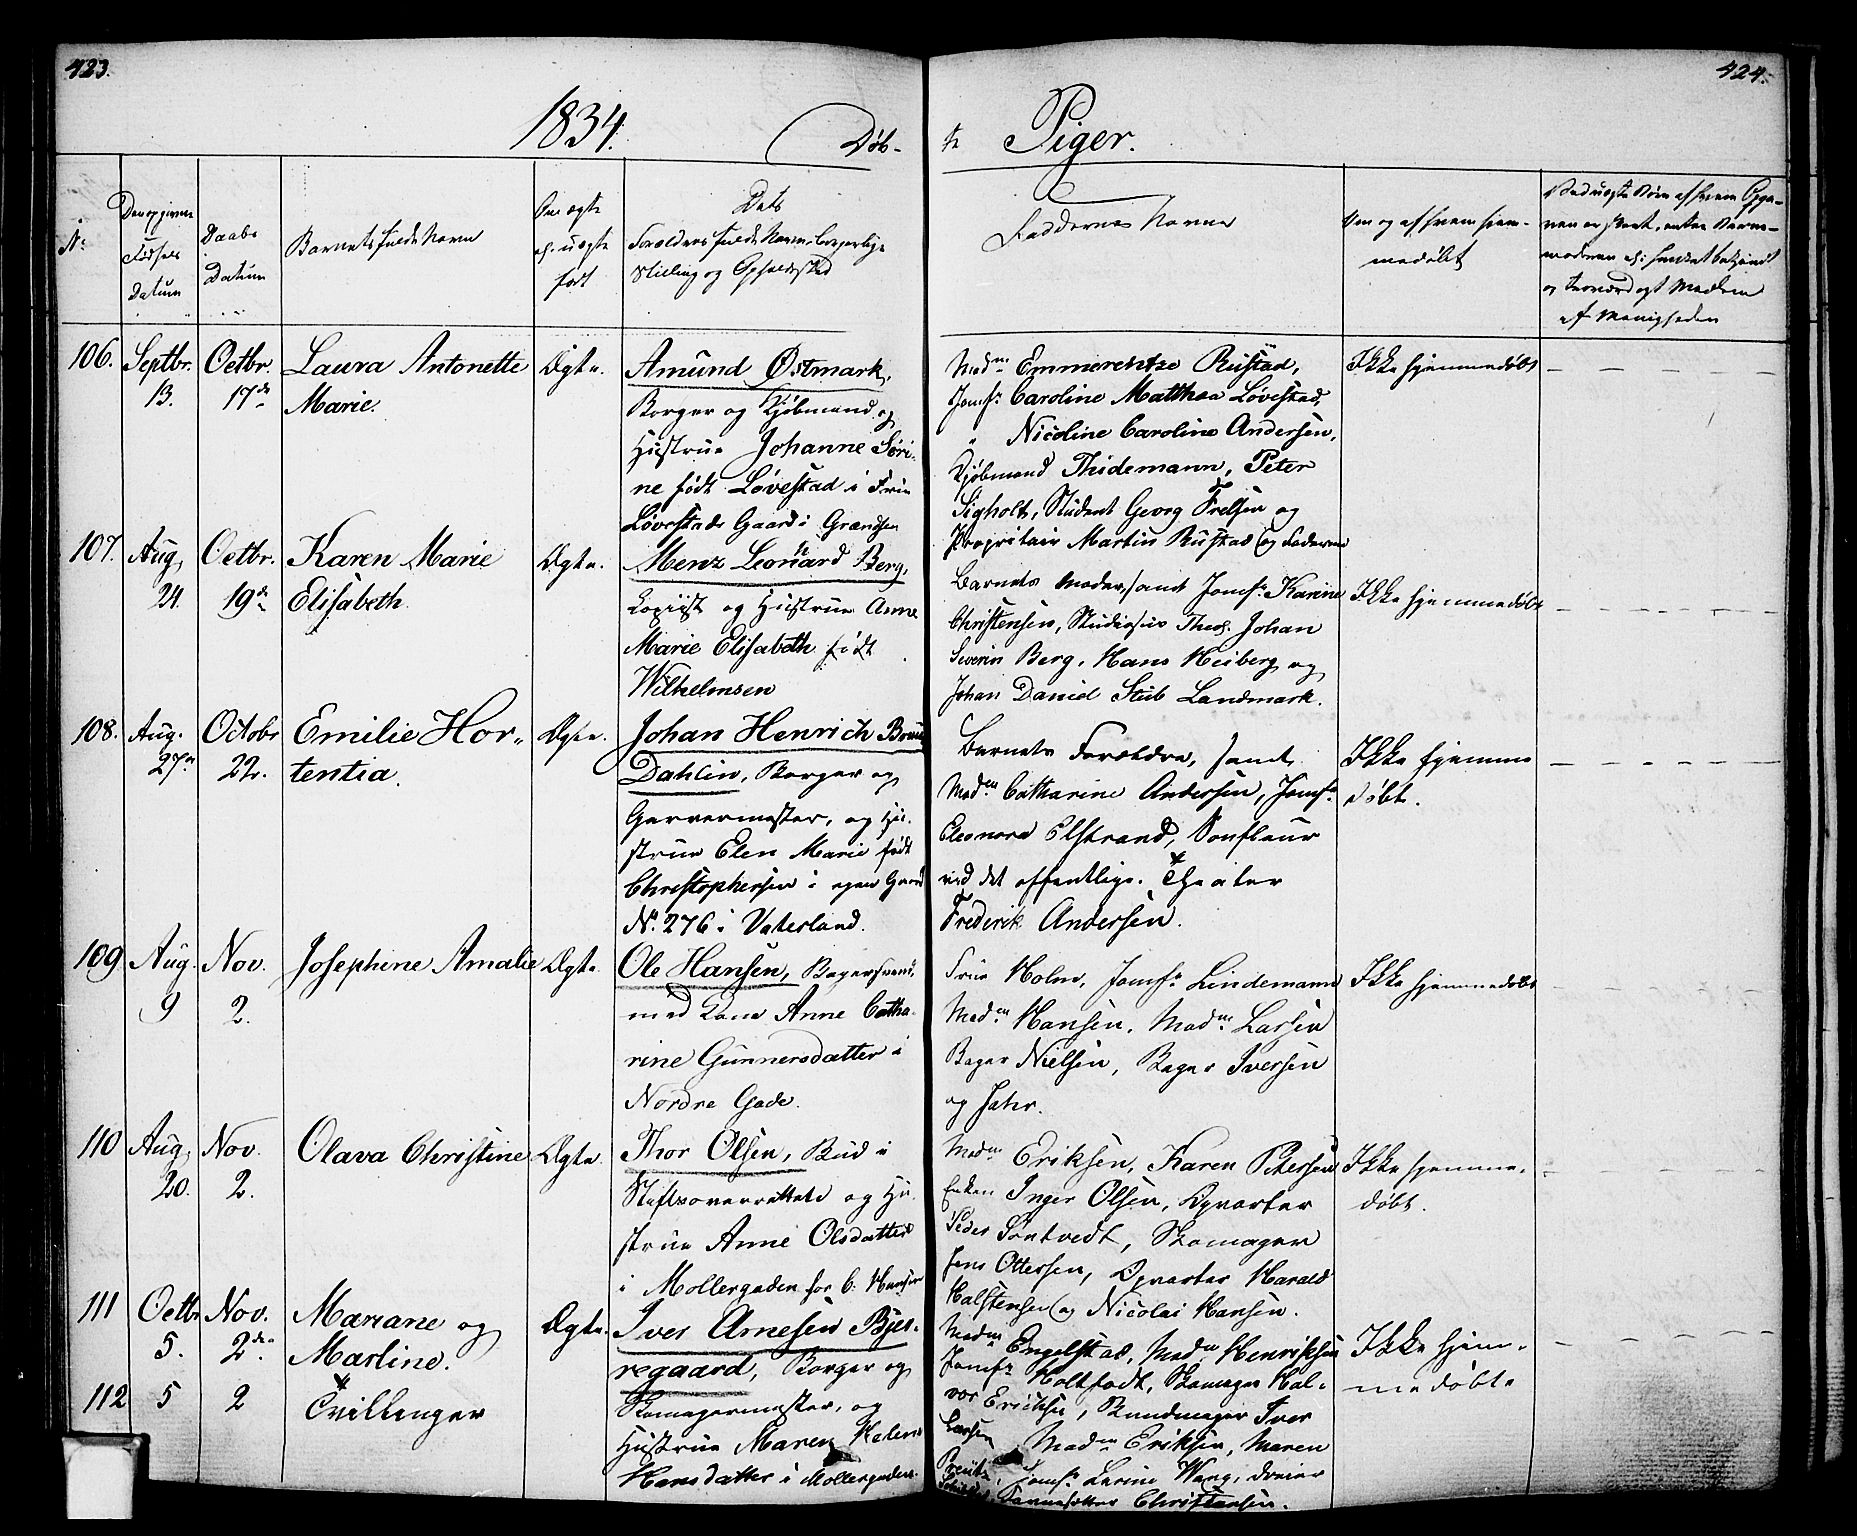 423.
424.
1834.
Døb-
te Piger.
No
Den opgivne
Fødsels
Datum
Daabs
Datum
Barnets fulde Navn
Om ægte
el. uægte
født
Dets
Forældres fulde Navn, borgerlige
Stilling og Opholdssted
Faddernes Navne
Om og af hvem hjem-
medøbt
106. Septbr. Octbr. Laura Antonette Ægte. Amund Østmark,
13. 17de Marie.
Borger og Kjøbmand og
Hustrue Johanne Søri-
ne født Løvestad i Frue
Løvestads Gaard i Grændsen
Madm Emmerentze Rustad,
Jomfr Caroline Matthea Løvestad,
" Nicoline Caroline Andersen,
Kjøbmand Thidemann, Peter
Sigholt, Student Georg Frelsen og
Propritair Martin Rustad og Faderen
Ikke hjemmedøbt
107. Aug. Octbr. Karen Marie Ægte. Menz Leonard Berg,
24. 19de Elisabeth.
Kopiist og Hustrue Anne
Marie Elisabeth født
Wilhelmsen
Barnets Moder, samt Jomfr Karine
Christensen, Studiosus Theol. Johan
Severin Berg, Hans Heiberg og
Johan Daniel Stub Landmark.
Ikke hjemmedøbt
108. Aug. Octobr Emilie Hor- Ægte. Johan Henrich Bruun
27de 22. tentia.
Dahlin, Borger og
Garvermester, og Hu-
strue Elen Marie født
Christophersen i egen Gaard
No. 276 i Vaterland.
Barnets Forældre, samt
Madm Catharine Andersen, Jomfr
Eleonora Elstrand, Soufleur
ved det offentlige Theater
Frederik Andersen.
Ikke hjemme
døbt.
109 Aug. Nov. Josephine Amalie Ægte. Ole Hansen, Bagersvend,
9 2.
med Kone Anne Catha-
rine Gunnersdatter i
Nordre Gade.
Frue Holm, Jomfr Lindemann
Madm Hansen, Madm Larsen
Bager Nielsen, Bager Iversen
og Fader.
Ikke hjemmedøbt
110 Aug. Nov. Olava Christine Ægte. Thor Olsen, Bud i
20. 2.
Stiftsoverretten og Hu-
strue Anne Olsdatter
i Møllergaden hos C. Hansen
Madm Eriksen, Karen Petersen
Enken Inger Olsen, Opvarter
Peder Tontvedt, Skomager
Jens Ottersen, Opvarter Harald
Halstensen og Nicolai Hansen.
Ikke hjemme-
døbt.
111 Octbr Nov. Mariane og Ægte. Iver Arnesen Bjer-
5. 2den Marline.
112 5 2 Tvillinger
regaard, Borger og
Skomagermester, og
Hustrue Maren Helene
Hansdatter i Møllergaden.
Madm Engelstad, Madm Henriksen
Jomfr Holtfodt, Skomager Hal-
vor Ericksen, Bundmager Iver
Larsen
Madm Eriksen, Maren
Jomfr Larine Wang,
Christensen.
Ikke hjem-
medøbte